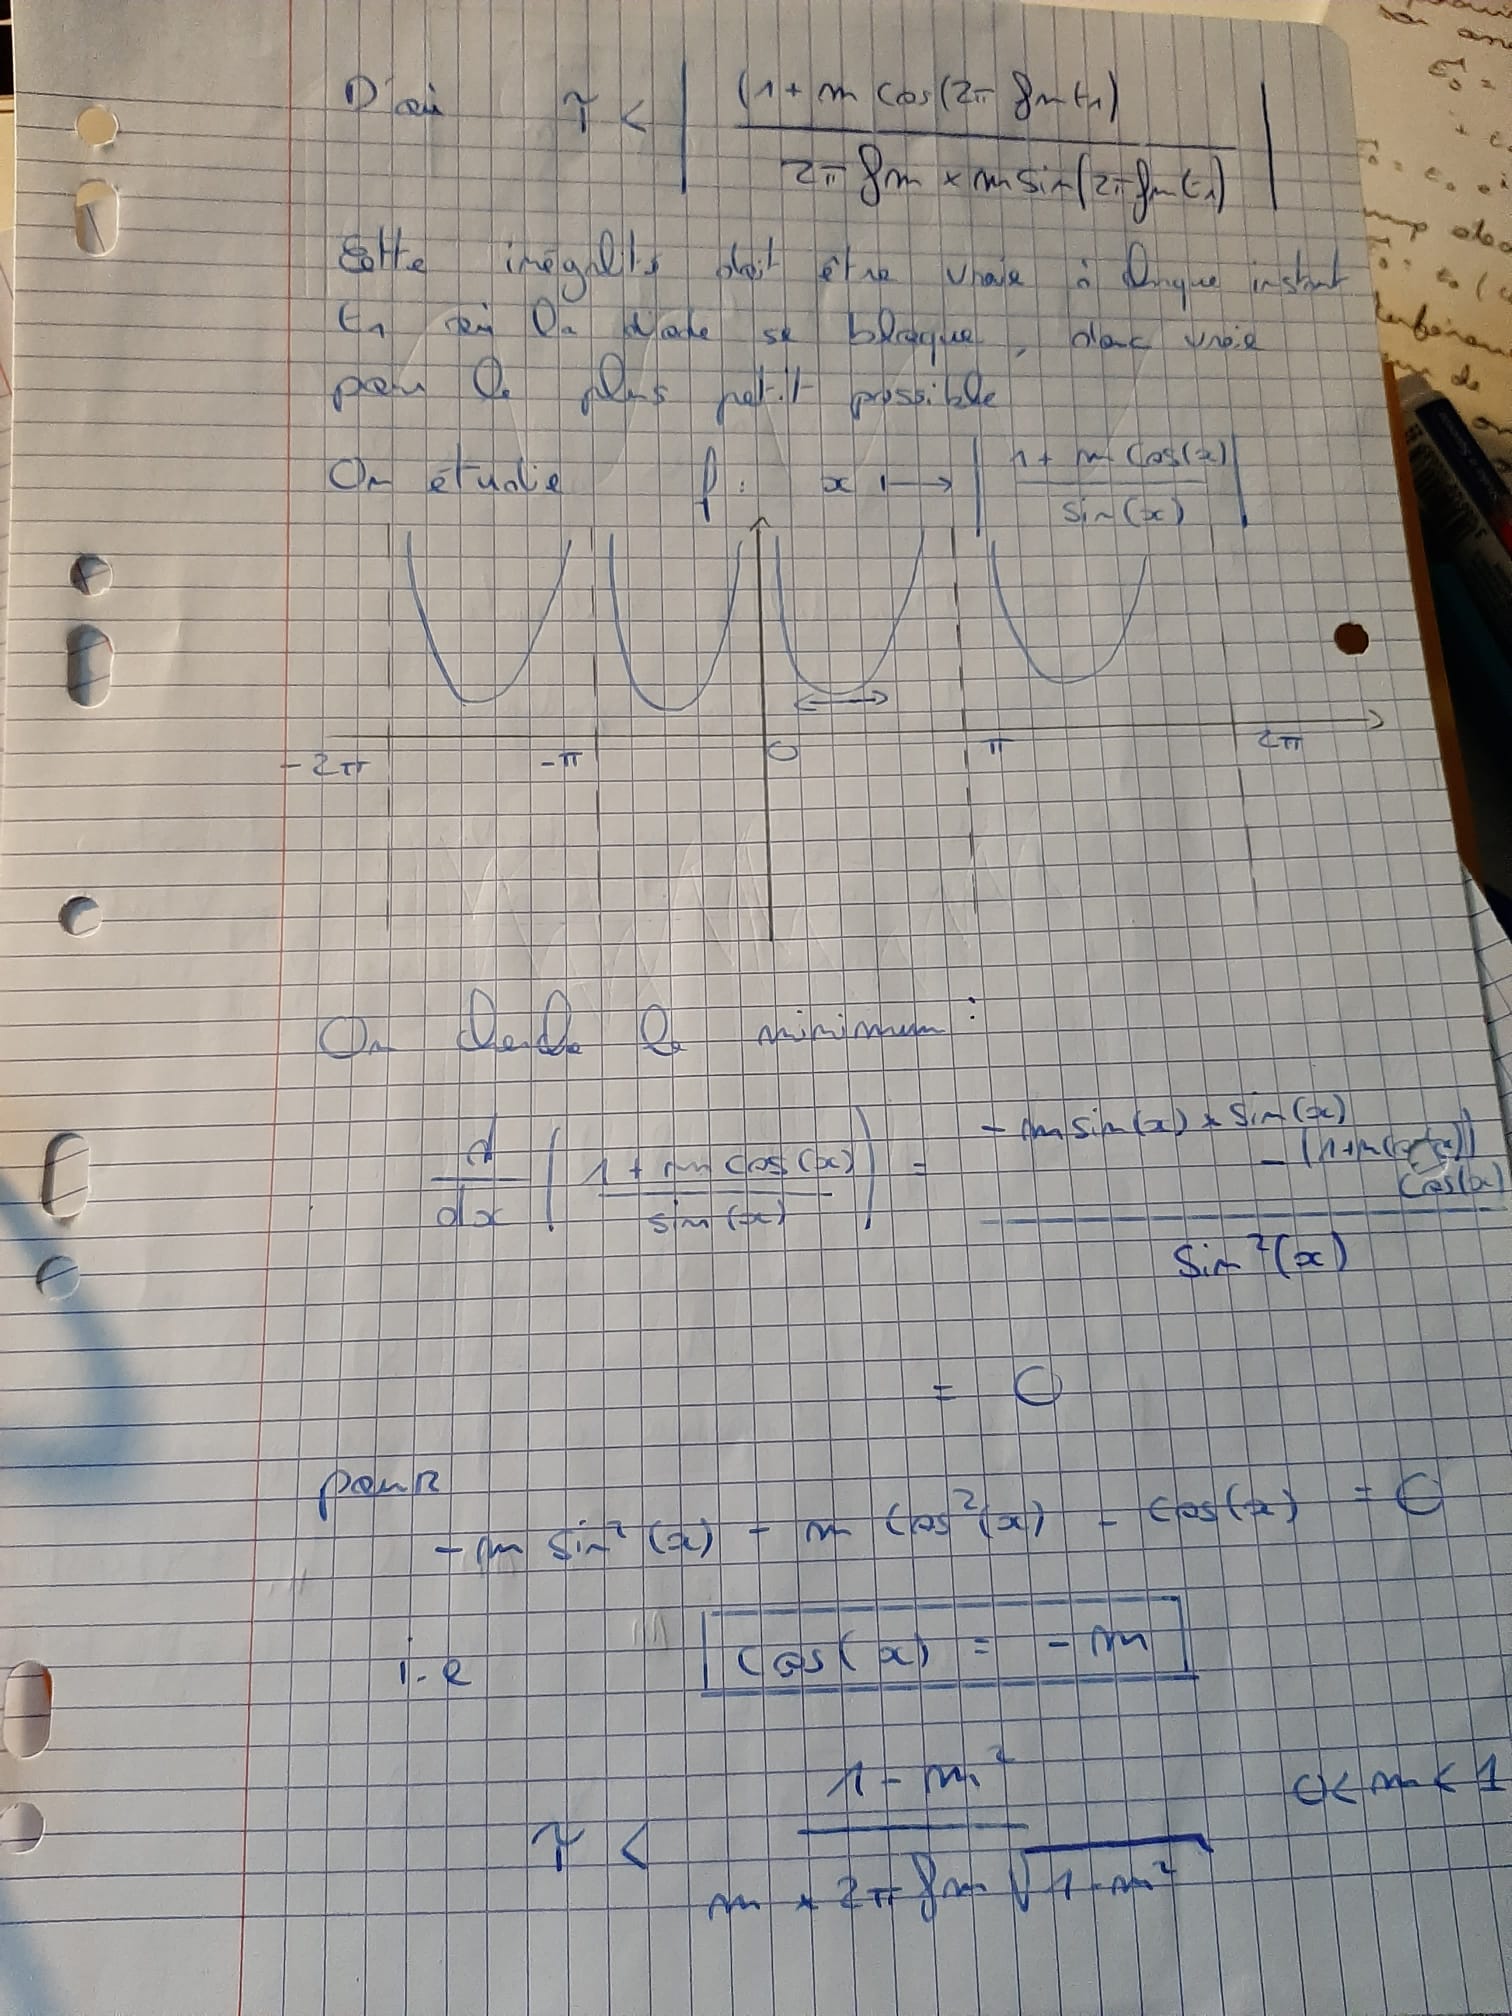 D'où τ < | (1 + m cos(2π fm t1) / 2π fm × m sin(2π fm t1) |
Cette inégalité doit être vraie à chaque instant
t1 où la diode se bloque, donc vraie
pour le plus petit possible
On étudie f : x ↦ | 1 + m cos(x) / sin(x) |
-2π -π 0 π 2π
On cherche le minimum :
d/dx ( 1 + m cos(x) / sin(x) ) = - m sin(x) × sin(x) - (1+m cos(x)) cos(x) / sin²(x)
= 0
pour
- m sin²(x) - m cos²(x) - cos(x) = 0
i.e cos(x) = - m
τ < 1 - m² / m × 2π fm √1-m² 0 < m < 1